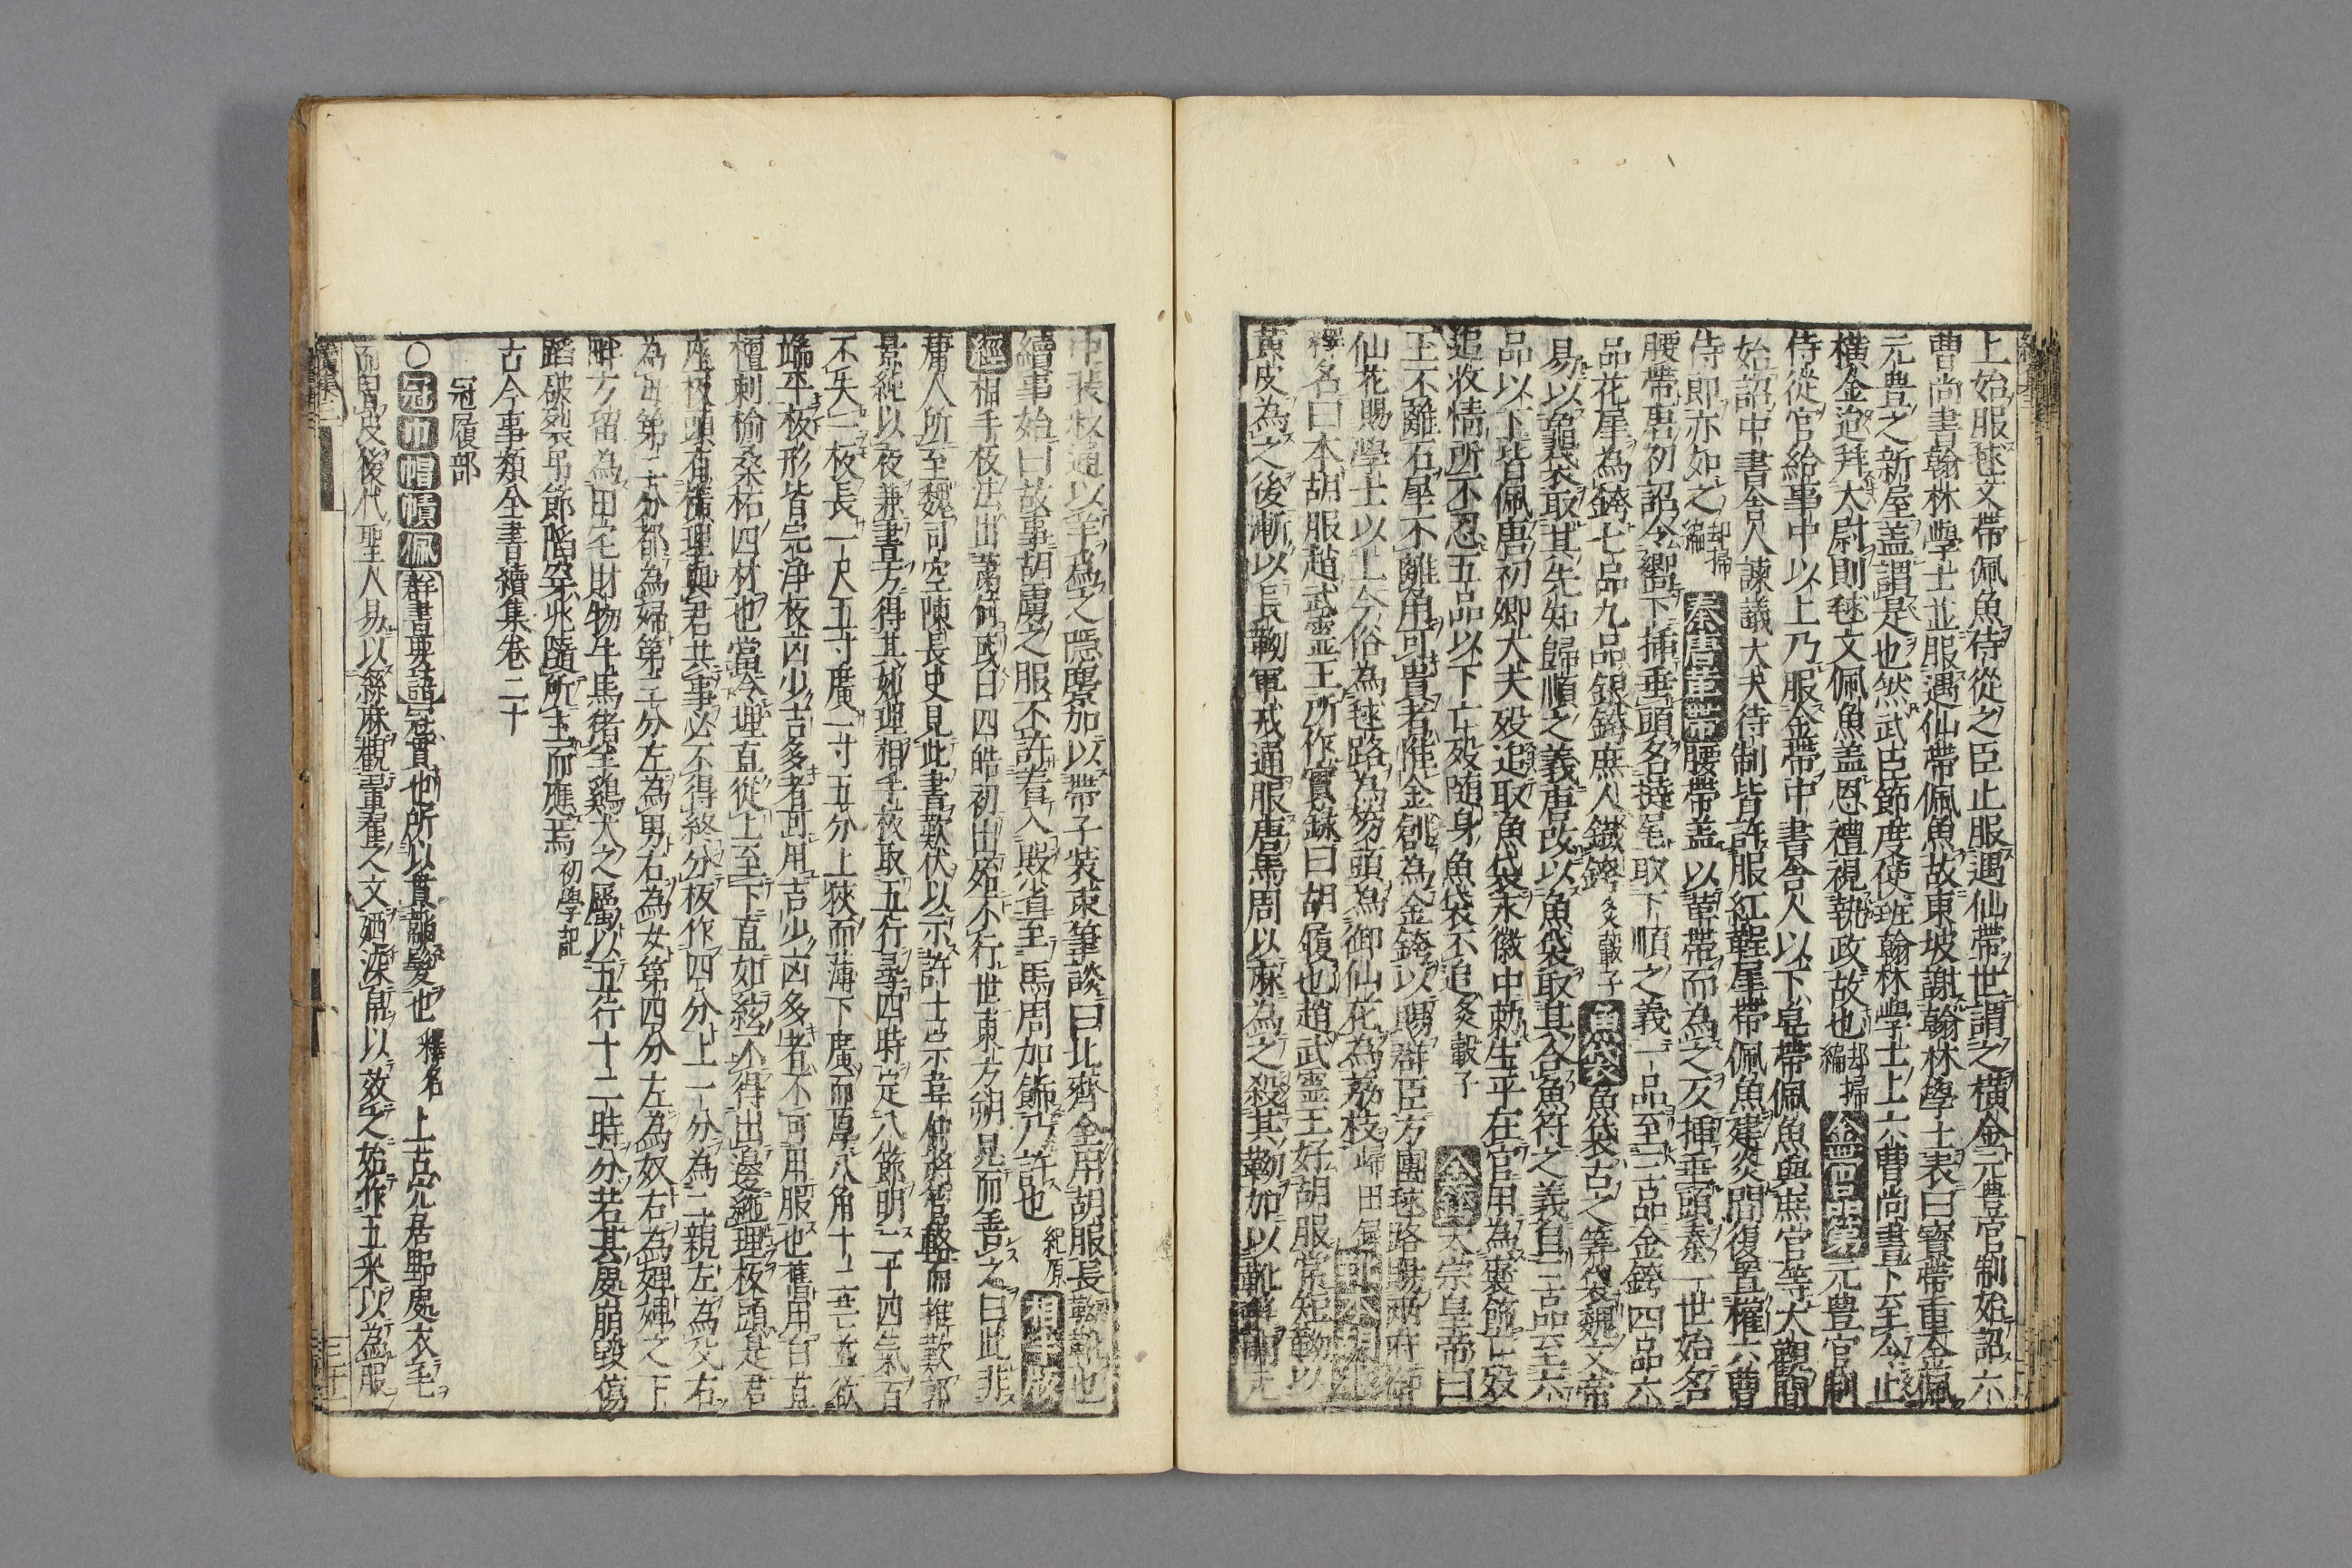 上始服毬文帶佩魚侍從之臣止服遇仙帶世謂之橫金元豊官制始詔六
曹尚書翰林學士並服遇仙帶佩魚故東坡謝翰林學士表曰寶帶重金佩
元豊之新屋盖謂是也然武臣節度使班翰林學士上六曹尚書下至今止
橫金迨拜大尉則毬文佩魚盖恩禮視執政故也却掃編 金帶品第元豊官制
侍從官給事中以上乃服金帶中書舍人以下皂帶佩魚與庶官等大觀間
始詔中書舍人諫議大夫待制皆許服紅鞓犀帶佩魚建炎間復置權六曹
侍郎亦如之却掃編 秦唐革帶腰帶盖以革帶而為之反插垂頭秦二世始名
腰帶唐初詔令嚮下插垂頭名撻尾取下順之義一品至三品金銙四品六
品花犀為銙七品九品銀銙庶人鐵銙炙轂子 魚袋魚袋古之筭袋魏文帝
易以龜袋取其先知歸順之義唐改以魚袋取其合魚符之義自三品至六
品以下皆佩唐初卿大夫歿追取魚袋永徽中勅生平在官用為褒飾亡歿
追收情所不忍五品以下亡歿随身魚袋不追炙轂子 金銙太宗皇帝曰
玉不離石犀不離角可貴者惟金創為金銙以賜群臣方團毬路賜兩府御
仙花賜學士以上今俗為毬路為笏頭為御仙花為荔枝歸田録
釋名曰本胡服趙武霊王所作實録曰胡履也趙武霊王好胡服常短靿以
黄皮為之後漸以長靿軍戎通服唐馬周以麻為之殺其靿加以靴
中裝杖通以羊為之隱麖加以帶子裝束筆談曰北齊全用胡服長靿靴也
續事始曰故事胡虜之服不許着入殿省至馬周加飾乃許也紀原 相手板
經相手板法出蕭何或曰四皓初出殆不行世東方朔見而善之曰此非
庸人所至魏司空陳長史見此書歎伏以示許士宗韋仲將管輅而推歎郭
景純以夜兼書方得其妙理相手板取五行尋四時定八節明二十四氣百
不失一板長一尺五寸廣一寸五分上狹而薄下廣而厚八角十二芒並欲
端平板形皆完浄板凶少吉多者可用吉少凶多者不可用服也舊用白直
檀刺榆桑柘四材也當令理直從上至下直如絃不得出邊絶理板頭是君
座板頭有橫理與君共事必不得終分板作四分上一分為二親左為父右
為母第二分都為婦第三分左為男右為女第四分左為奴右為婢婢之下
畔方留為田宅財物牛馬猪羊鷄犬之屬以五行十二時分若其處崩毀傷
蹈破裂吊節陷穿兆隨所主而應焉初學記
古今事類全書續集卷二十
冠履部
○冠巾帽幘佩群書要語冠貫也所以貫韜髮也釋名 上古穴居野處衣毛
而冒皮後代聖人易以絲麻觀翬翟之文榮華之色乃染帛以效之始作五采以為服